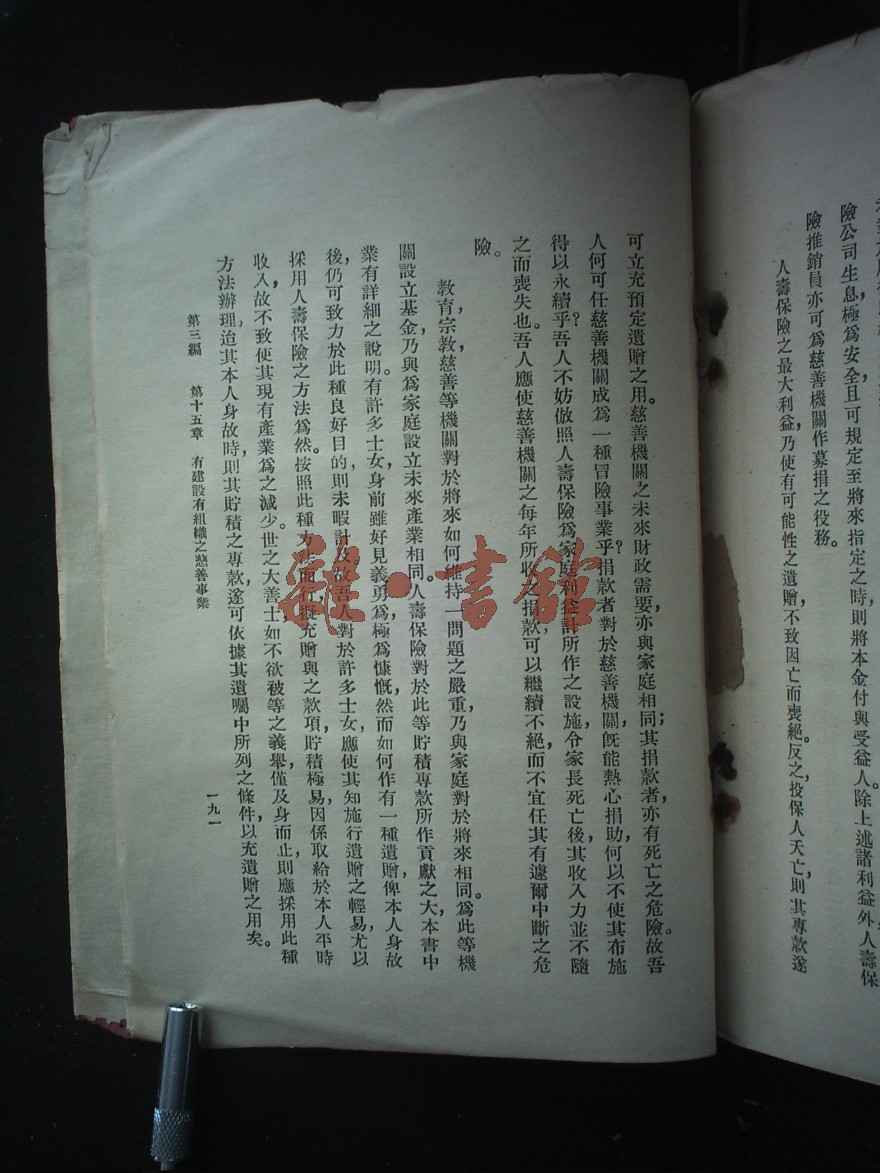 險公司生息，極爲安全且可規定至將來指定之時則將本金付與受益人。除上述諸利益外，人壽保
險推銷員亦可爲慈善機關作募捐之役務。
人壽保險之最大利益，乃使有可能性之遺贈，不致因亡而喪絕。反之，投保人夭亡，則其專款遂
可立充預定遺贈之用。慈善機關之未來財政需要，亦與家庭相同；其捐款者，亦有死亡之危險。故吾
人何可任慈善機關成爲一種冒險事業乎？捐款者對於慈善機關，旣能熱心捐助，何以不使其布施
得以永續乎？吾人不妨倣照人壽保險爲家庭利益計所作之設施，令家長死亡後，其收入力並不隨
之而喪失也。吾人應使慈善機關之每年所收之捐款，可以繼續不絕，而不宜任其有遽爾中斷之危
險。
教育，宗教，慈善等機關對於將來如何維持一問題之嚴重，乃與家庭對於將來相同。爲此等機
關設立基金，乃與爲家庭設立未來產業相同。人壽保險對於此等貯積專款所作貢獻之大，本書中
業有詳細之說明。有許多士女，身前雖好見義勇爲，極爲慷慨，然而如何作有一種遺贈，俾本人身故
後，仍可致力於此種良好目的，則未暇計及。故吾人對於許多士女，應使其知施行遺贈之輕易，尤以
採用人壽保險之方法爲然。按照此種方法而行，擬充贈與之款項，貯積極易，因係取給於本人平時
收入，故不致使其現有產業爲之減少。世之大善士如不欲彼等之義舉，僅及身而止，則應採用此種
方法辦理。迨其本人身故時，則其貯積之專款，遂可依據其遺囑中所列之條件，以充遺贈之用矣。
第三編　第十五章　有建設有組織之慈善事業
一九一
雜·書館